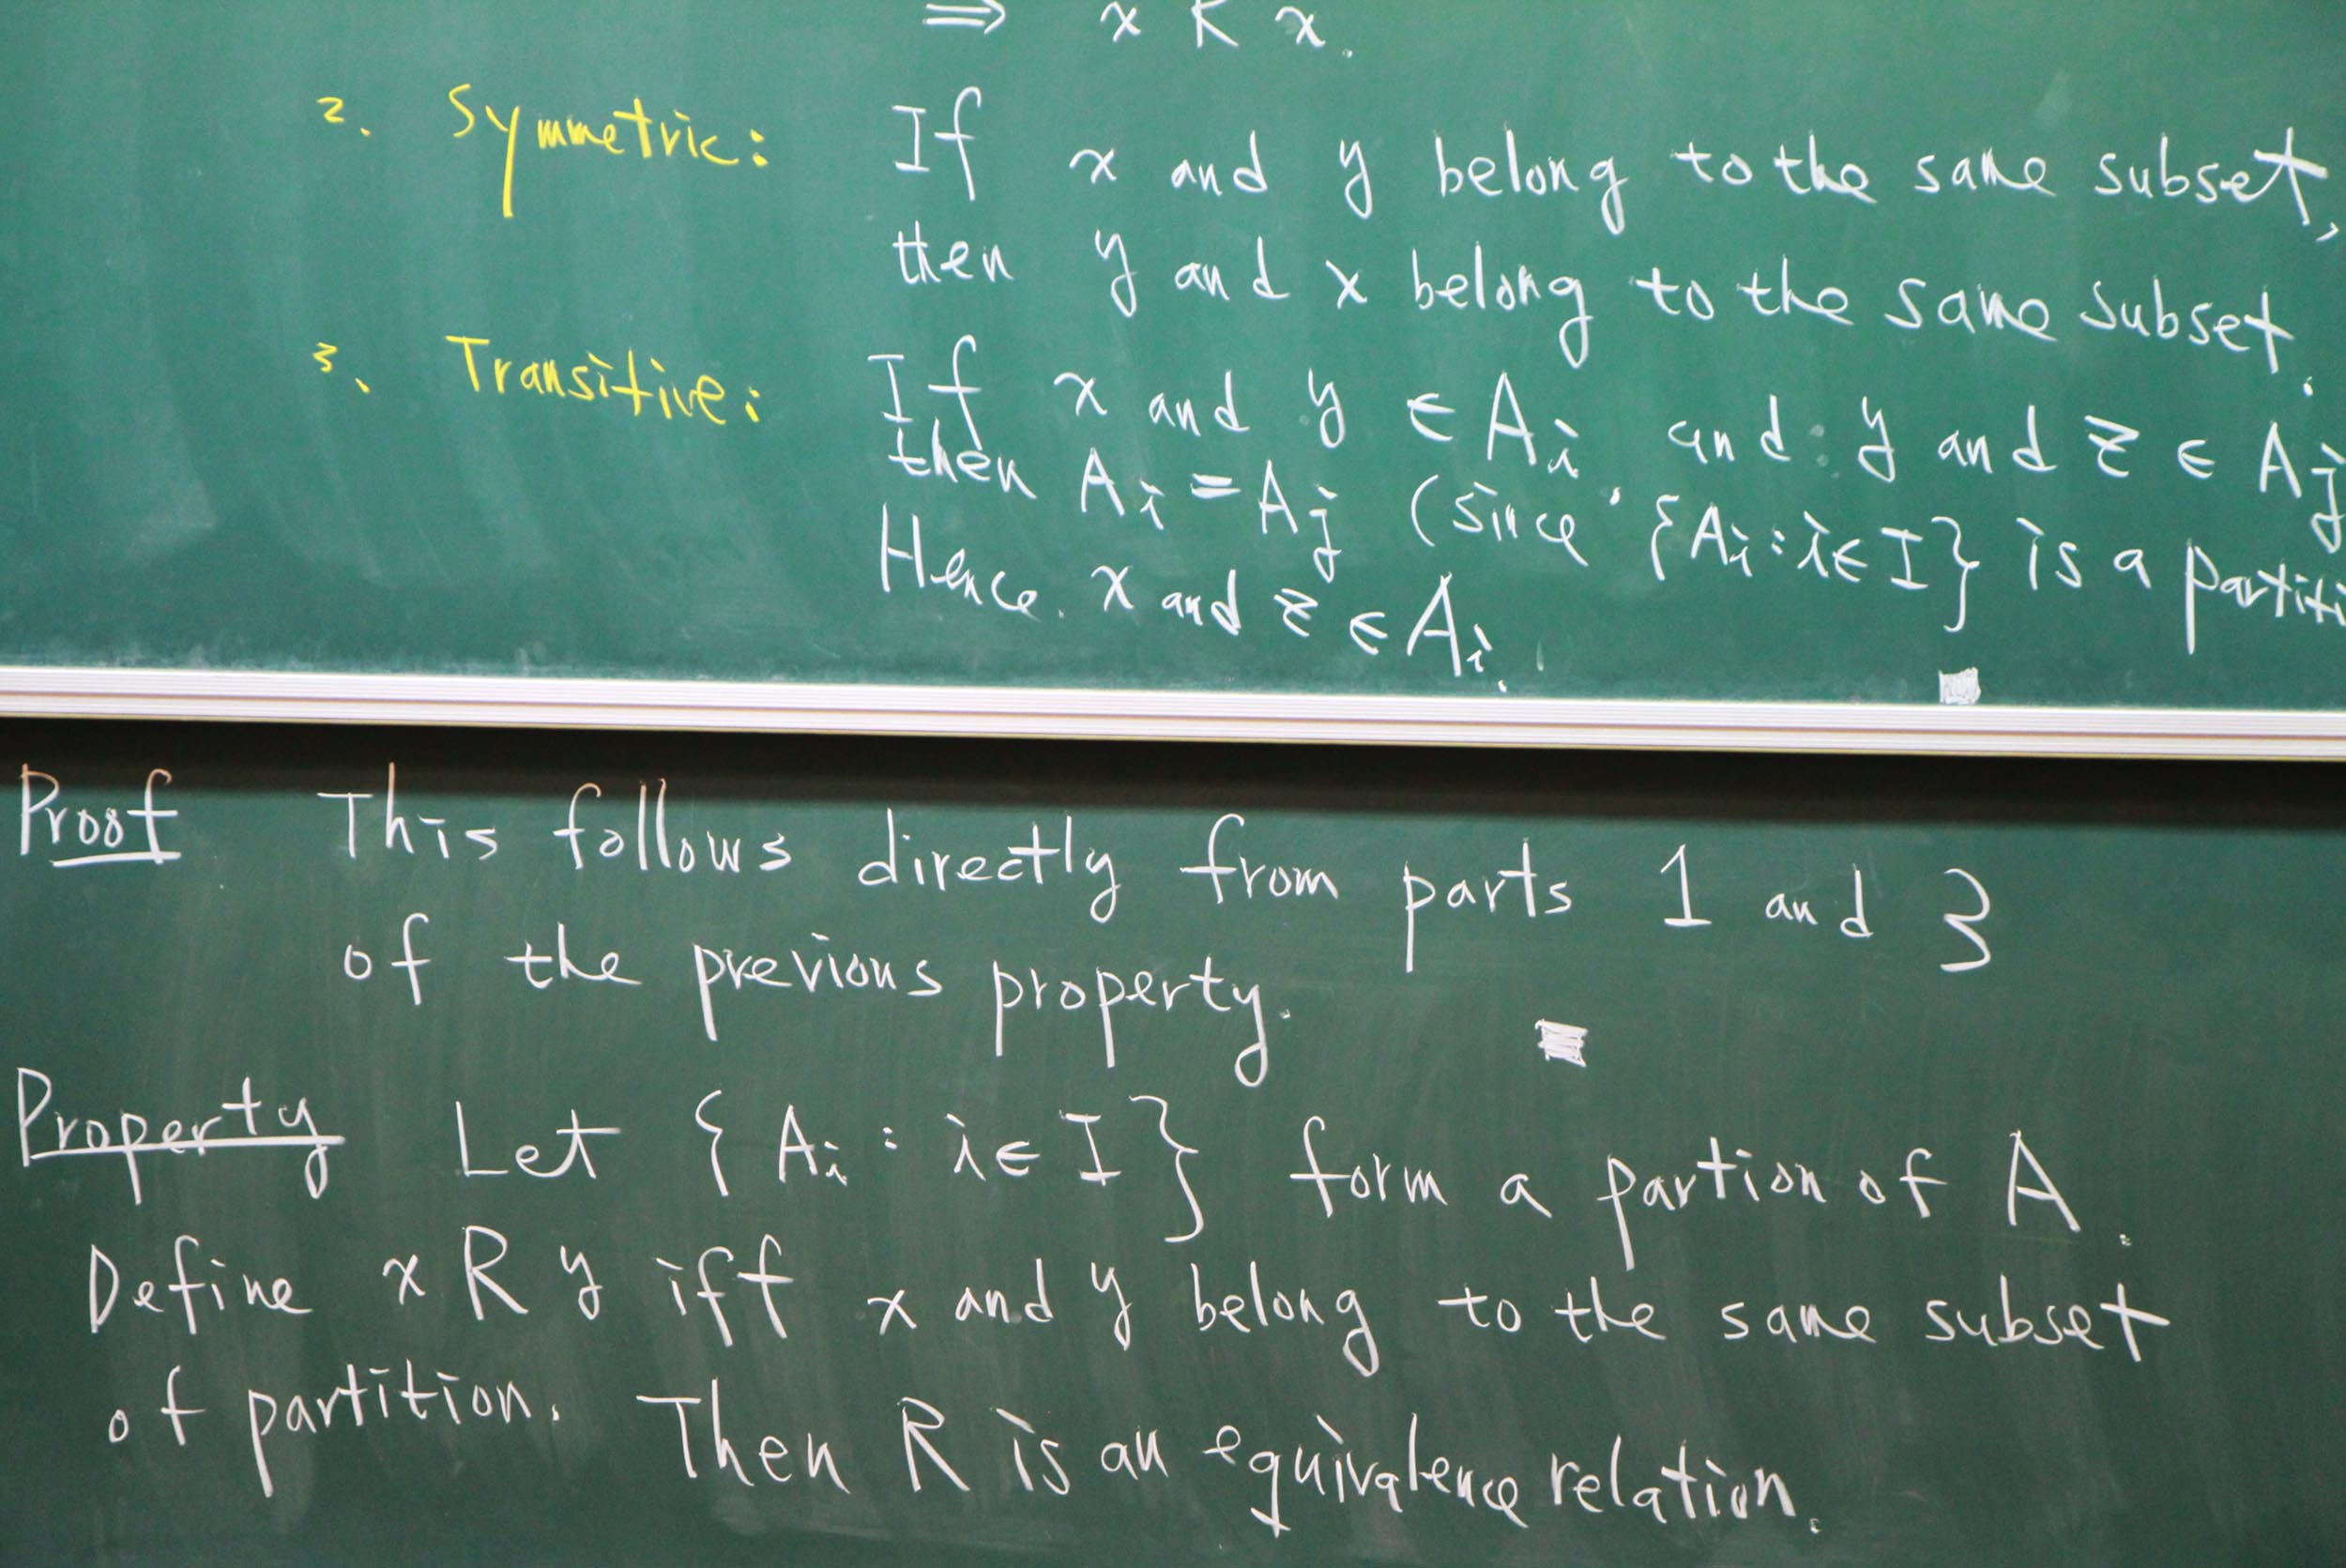 ⇒ x R x.
2. Symmetric: If x and y belong to the same subset,
then y and x belong to the same subset.
3. Transitive: If x and y ∈ Ai and y and z ∈ Aj
then Ai = Aj (since {Ai : i ∈ I} is a partiti
Hence x and z ∈ Ai.
Proof This follows directly from parts 1 and 3
of the previous property.
Property Let {Ai : i ∈ I} form a partion of A.
Define x R y iff x and y belong to the same subset
of partition. Then R is an equivalence relation.